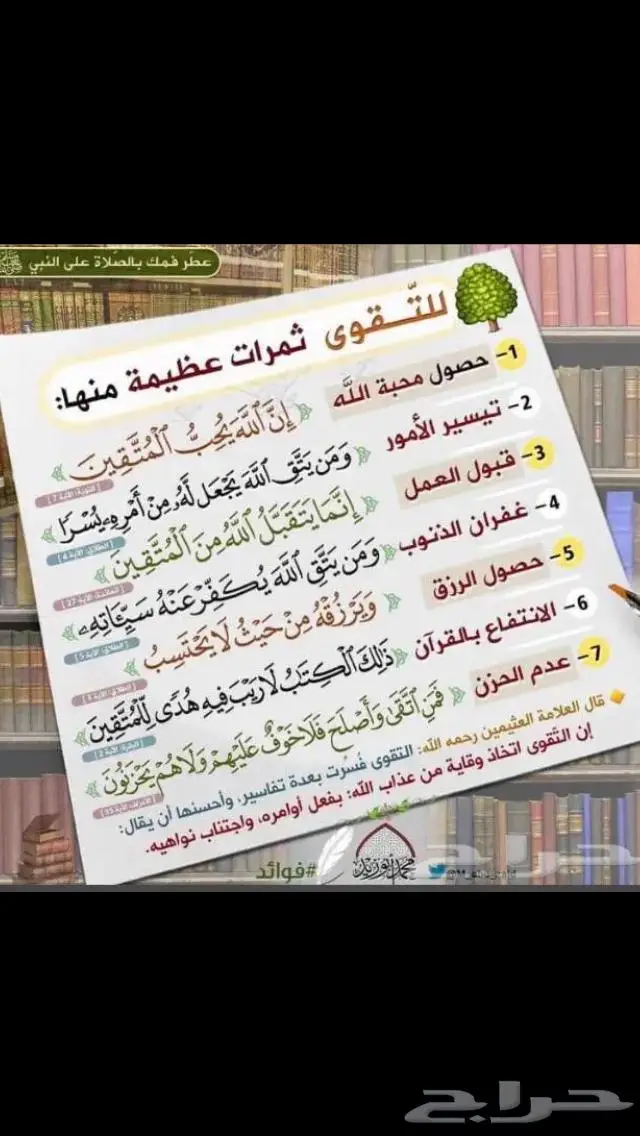 عطّر فمك بالصّلاة على النبي ﷺ
للتّـقوى ثمرات عظيمة منها:
1- حصول محبة اللّٰه ﴿إِنَّ ٱللَّهَ يُحِبُّ ٱلْمُتَّقِينَ﴾
[التوبة: الآية 7]
2- تيسير الأمور ﴿وَمَن يَتَّقِ ٱللَّهَ يَجْعَل لَّهُۥ مِنْ أَمْرِهِۦ يُسْرًا﴾
[الطلاق: الآية 4]
3- قبول العمل ﴿إِنَّمَا يَتَقَبَّلُ ٱللَّهُ مِنَ ٱلْمُتَّقِينَ﴾
[المائدة: الآية 27]
4- غفران الذنوب ﴿وَمَن يَتَّقِ ٱللَّهَ يُكَفِّرْ عَنْهُ سَيِّـَٔاتِهِۦ﴾
[الطلاق: الآية 5]
5- حصول الرزق ﴿وَيَرْزُقْهُ مِنْ حَيْثُ لَا يَحْتَسِبُ﴾
[الطلاق: الآية 3]
6- الانتفاع بالقرآن ﴿ذَٰلِكَ ٱلْكِتَٰبُ لَا رَيْبَ فِيهِ هُدًى لِّلْمُتَّقِينَ﴾
[البقرة: الآية 2]
7- عدم الحزن ﴿فَمَنِ ٱتَّقَىٰ وَأَصْلَحَ فَلَا خَوْفٌ عَلَيْهِمْ وَلَا هُمْ يَحْزَنُونَ﴾
[الأعراف: الآية 35]
قال العلامة العثيمين رحمه اللّٰه: التقوى فُسرت بعدة تفاسير، وأحسنها أن يقال:
إن التّقوى اتخاذ وقاية من عذاب اللّٰه: بفعل أوامره، واجتناب نواهيه.
#فوائد
حراج
حراج